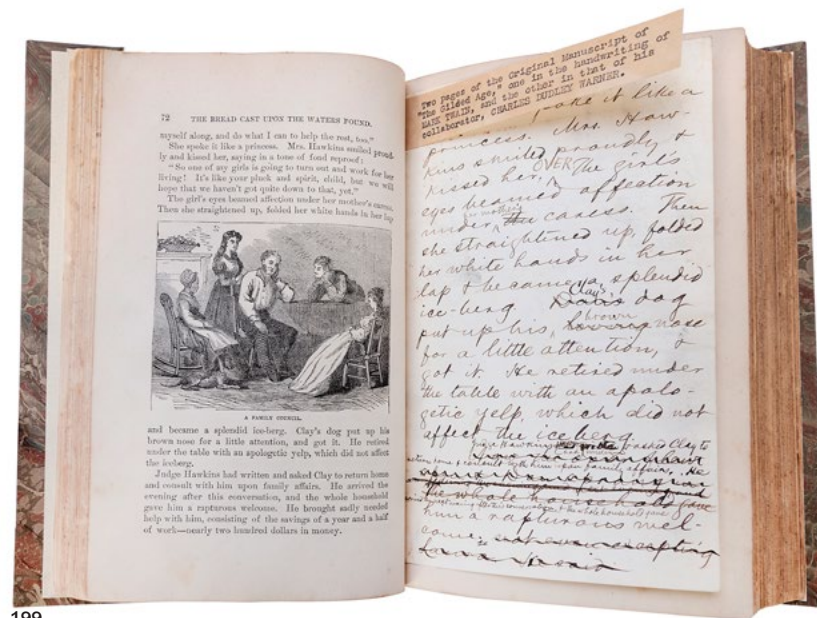 72 THE BREAD CAST UPON THE WATERS FOUND.
myself along, and do what I can to help the rest, too."
She spoke it like a princess. Mrs. Hawkins smiled proud-
ly and kissed her, saying in a tone of fond reproof:
"So one of my girls is going to turn out and work for her
living! It's like your pluck and spirit, child, but we will
hope that we haven't got quite down to that, yet."
The girl's eyes beamed affection under her mother's caress.
Then she straightened up, folded her white hands in her lap
A FAMILY COUNCIL.
and became a splendid ice-berg. Clay's dog put up his
brown nose for a little attention, and got it. He retired
under the table with an apologetic yelp, which did not affect
the iceberg.
Judge Hawkins had written and asked Clay to return home
and consult with him upon family affairs. He arrived the
evening after this conversation, and the whole household
gave him a rapturous welcome. He brought sadly needed
help with him, consisting of the savings of a year and a half
of work—nearly two hundred dollars in money.
Two Pages of the Original Manuscript of
"The Gilded Age," one in the handwriting of
MARK TWAIN, and the other in that of his
collaborator, CHARLES DUDLEY WARNER.
it like a
princess. Mrs. Haw-
kins smiled proudly &
kissed her. OVER The girl's
eyes beamed affection
her mother's
under the caress. Then
she straightened up, folded
her white hands in her
lap & became a splendid
Clay's
ice-berg. dog
brown
put up his, nose
for a little attention, &
got it. He retired under
the table with an apolo-
getic yelp, which did not
affect the iceberg.
Judge Hawkins asked Clay to
return home & consult with him upon family affairs. He
& the whole household gave
the whole household gave
him a rapturous wel-
come, not even excepting
199